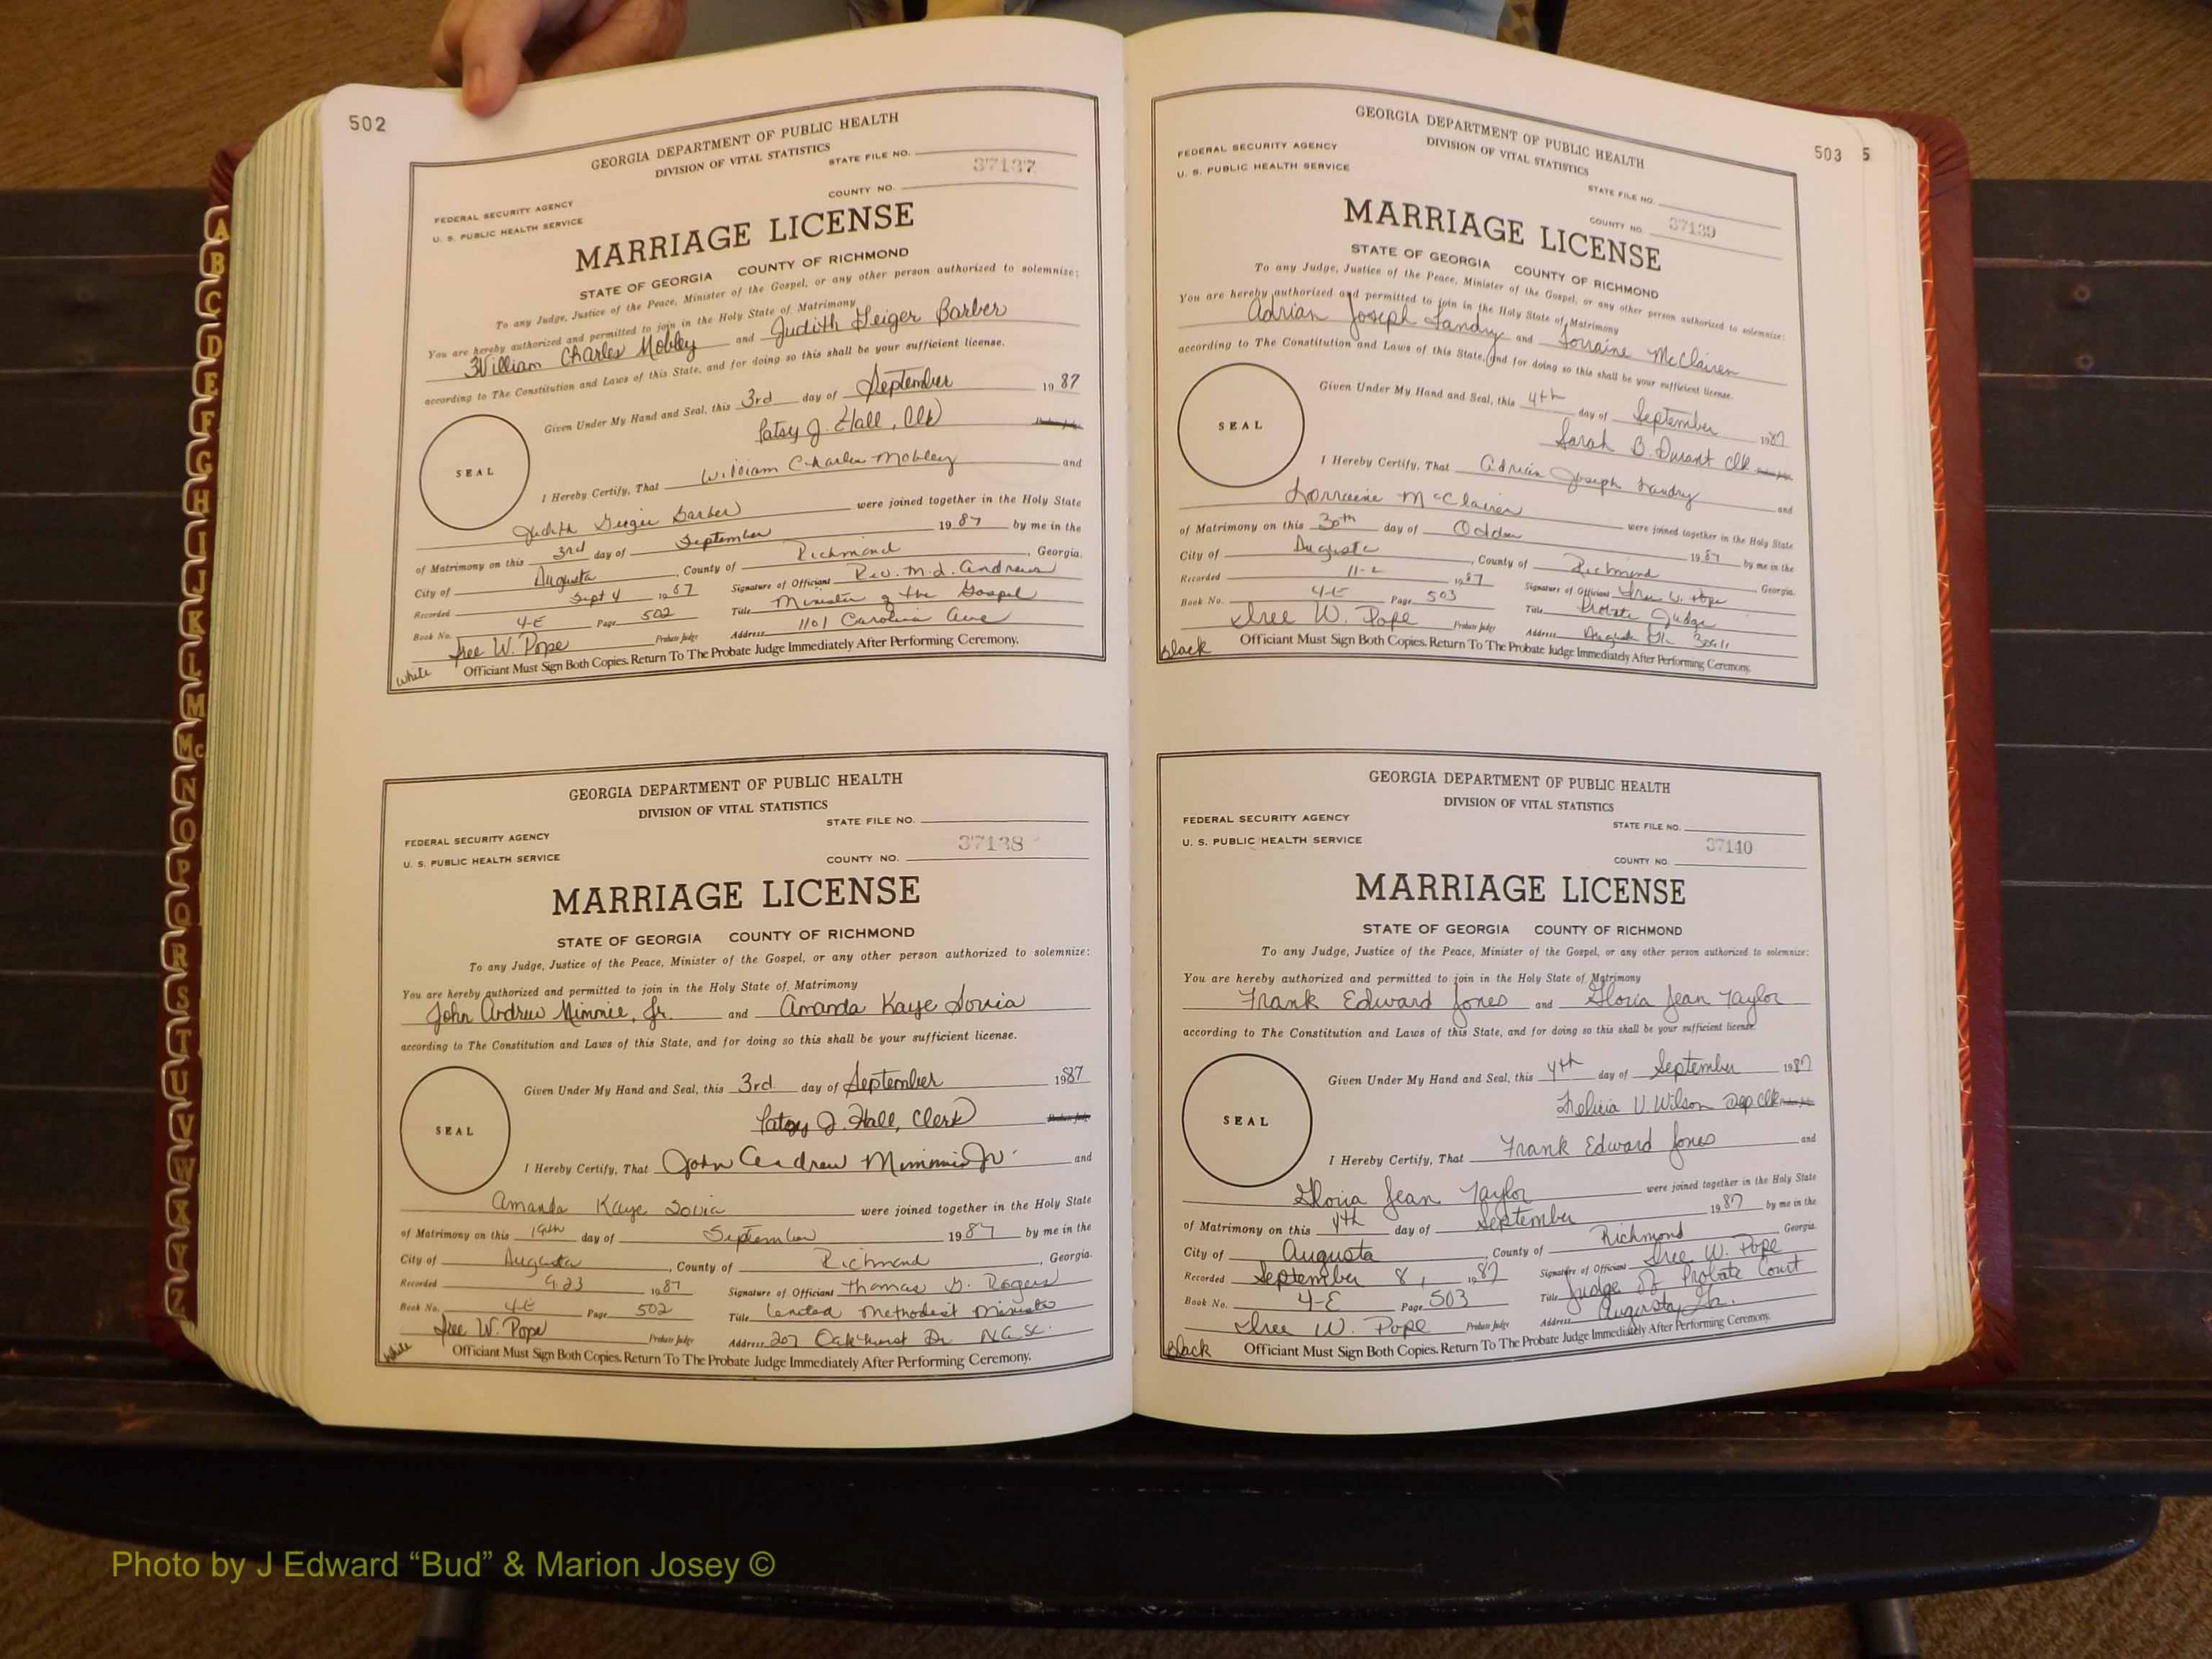 502
GEORGIA DEPARTMENT OF PUBLIC HEALTH
DIVISION OF VITAL STATISTICS
STATE FILE NO.
37137
COUNTY NO.
FEDERAL SECURITY AGENCY
U. S. PUBLIC HEALTH SERVICE
MARRIAGE LICENSE
STATE OF GEORGIA COUNTY OF RICHMOND
To any Judge, Justice of the Peace, Minister of the Gospel, or any other person authorized to solemnize:
You are hereby authorized and permitted to join in the Holy State of Matrimony
William Charles Mobley and Judith Geiger Barber
according to The Constitution and Laws of this State, and for doing so this shall be your sufficient license.
Given Under My Hand and Seal, this 3rd day of September 1987
Patsy J. Hall, Clk
SEAL
I Hereby Certify, That William Charles Mobley and
Judith Geiger Barber were joined together in the Holy State
of Matrimony on this 3rd day of September 1987 by me in the
City of Augusta, County of Richmond, Georgia.
Recorded Sept 4 1987 Signature of Officiant Rev. M. L. Andrews
Book No. 4-E Page 502 Title Minister of the Gospel
Iree W. Pope Probate Judge Address 1101 Carolina Ave
White Officiant Must Sign Both Copies. Return To The Probate Judge Immediately After Performing Ceremony.
GEORGIA DEPARTMENT OF PUBLIC HEALTH
DIVISION OF VITAL STATISTICS
STATE FILE NO.
FEDERAL SECURITY AGENCY
37138
U. S. PUBLIC HEALTH SERVICE
COUNTY NO.
MARRIAGE LICENSE
STATE OF GEORGIA COUNTY OF RICHMOND
To any Judge, Justice of the Peace, Minister of the Gospel, or any other person authorized to solemnize:
You are hereby authorized and permitted to join in the Holy State of Matrimony
John Andrew Mimmie, Jr. and Amanda Kaye Sovia
according to The Constitution and Laws of this State, and for doing so this shall be your sufficient license.
Given Under My Hand and Seal, this 3rd day of September 1987
Patsy J. Hall, Clerk
SEAL
I Hereby Certify, That John Andrew Jr. and
Amanda Kaye Sovia were joined together in the Holy State
of Matrimony on this 19th day of September 1987 by me in the
City of Augusta, County of Richmond, Georgia.
Recorded 9-23 1987 Signature of Officiant Thomas G. Rogers
Book No. 4-E Page 502 Title United Methodist Minister
Iree W. Pope Probate Judge Address 207 Oakhurst Dr N.A. S.C.
White Officiant Must Sign Both Copies. Return To The Probate Judge Immediately After Performing Ceremony.
503 5
GEORGIA DEPARTMENT OF PUBLIC HEALTH
DIVISION OF VITAL STATISTICS
FEDERAL SECURITY AGENCY
U. S. PUBLIC HEALTH SERVICE
STATE FILE NO.
COUNTY NO. 37139
MARRIAGE LICENSE
STATE OF GEORGIA COUNTY OF RICHMOND
To any Judge, Justice of the Peace, Minister of the Gospel, or any other person authorized to solemnize:
You are hereby authorized and permitted to join in the Holy State of Matrimony
Adrian Joseph Landry and Lorraine McClairen
according to The Constitution and Laws of this State, and for doing so this shall be your sufficient license.
Given Under My Hand and Seal, this 4th day of September 1987
Sarah B. Durant Clk
SEAL
I Hereby Certify, That Adrian Joseph Landry and
Lorraine McClairen were joined together in the Holy State
of Matrimony on this 30th day of October 1987 by me in the
City of Augusta, County of Richmond Georgia.
Recorded 11-2 1987 Signature of Officiant Iree W. Pope
Book No. 4-E Page 503 Title Probate Judge
Iree W. Pope Probate Judge Address Augusta Ga 30911
Black Officiant Must Sign Both Copies. Return To The Probate Judge Immediately After Performing Ceremony.
GEORGIA DEPARTMENT OF PUBLIC HEALTH
DIVISION OF VITAL STATISTICS
FEDERAL SECURITY AGENCY
STATE FILE NO.
U. S. PUBLIC HEALTH SERVICE
37140
COUNTY NO.
MARRIAGE LICENSE
STATE OF GEORGIA COUNTY OF RICHMOND
To any Judge, Justice of the Peace, Minister of the Gospel, or any other person authorized to solemnize:
You are hereby authorized and permitted to join in the Holy State of Matrimony
Frank Edward Jones and Gloria Jean Taylor
according to The Constitution and Laws of this State, and for doing so this shall be your sufficient license.
Given Under My Hand and Seal, this 4th day of September 1987
V. Wilson Dep Clk
SEAL
I Hereby Certify, That Frank Edward Jones and
Gloria Jean Taylor were joined together in the Holy State
of Matrimony on this 4th day of September 1987 by me in the
City of Augusta, County of Richmond Georgia.
Recorded September 8, 1987 Signature of Officiant Iree W. Pope
Book No. 4-E Page 503 Title Judge of Probate Court
Iree W. Pope Probate Judge Address Augusta, Ga.
Black Officiant Must Sign Both Copies. Return To The Probate Judge Immediately After Performing Ceremony.
A
B
C
D
E
F
G
H
I
J
K
L
M
Mc
N
O
P
Q
R
S
T
U
V
W
X
Y
Z
Photo by J Edward “Bud” & Marion Josey ©